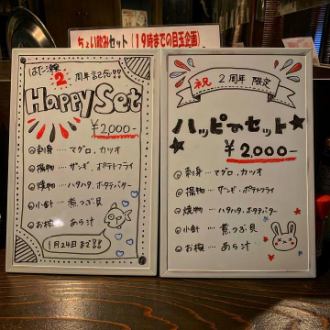 ちょい飲みセット(19時までの目玉企画)
はたご家 2周年記念!!
Happy Set
¥2,000-
◎刺身…マグロ、カツオ
◎揚物…ザンギ、ポテトフライ
◎焼物…ハタハタ、ポタテバター
◎小鉢…煮つぶ貝
◎お椀…あら汁
1月24日まで!!
祝 2周年 限定
ハッピーセット
¥2,000-
◎刺身…マグロ、カツオ
◎揚物…ザンギ、ポテトフライ
◎焼物…ハタハタ、ホタテバター
◎小鉢…煮つぶ貝
◎お椀…あら汁